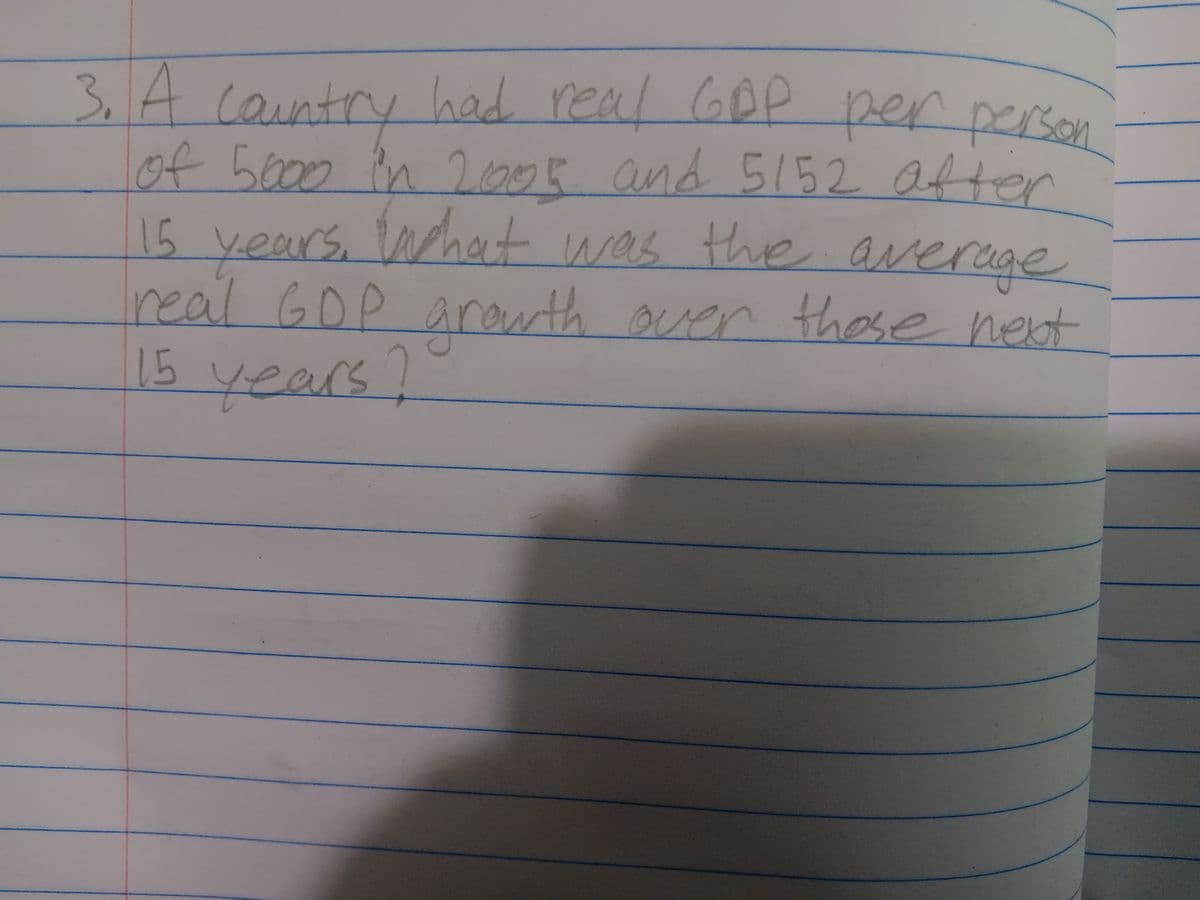 3. A country had real GDP per person
of 5000 in 2005 and 5152 after
15 years. What was the average
real GDP growth over those next
15 years?